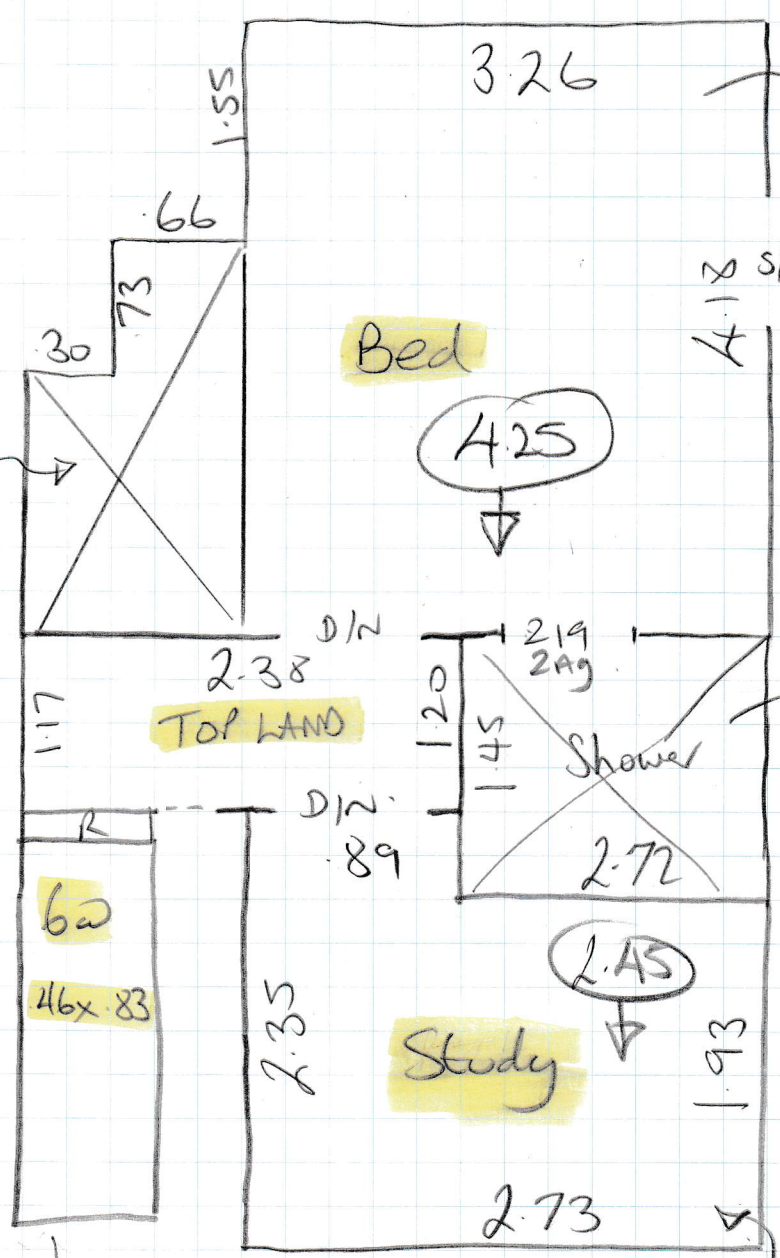 3.26
1.55
.66
.73
.30
4.18
Bed
4.25
D/N
219
2Ag
2.38
TOP LAND
1.17
1.20
1.45
Shower
R
D/N
.89
2.72
2.45
.46x.83
2.35
Study
1.93
2.73